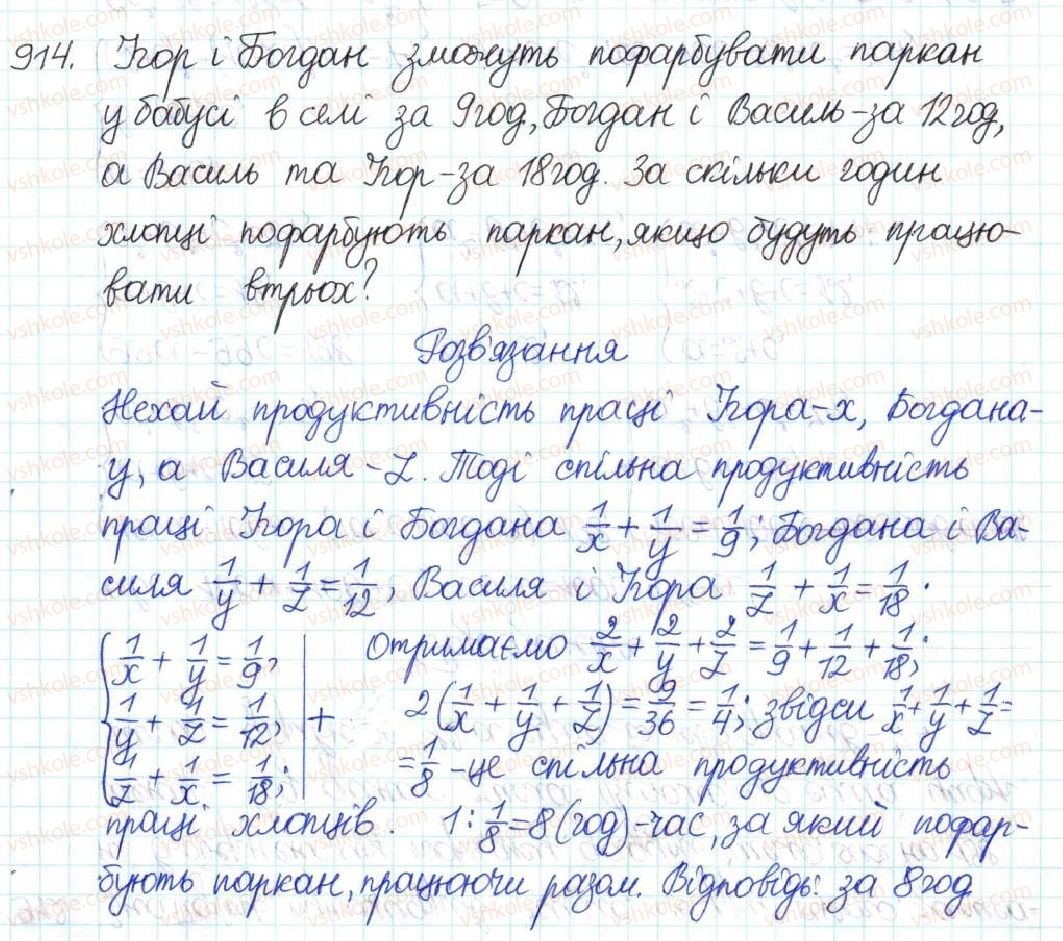 914. Ігор і Богдан зможуть пофарбувати паркан
у бабусі в селі за 9год, Богдан і Василь-за 12год,
а Василь та Ігор-за 18год. За скільки годин
хлопці пофарбують паркан, якщо будуть працю-
вати втрьох?
Розв'язання
Нехай продуктивність праці Ігора-x, Богдана-
y, а Василя-z. Тоді спільна продуктивність
праці Ігора і Богдана 1/x + 1/y = 1/9; Богдана і Ва-
силя 1/y + 1/z = 1/12, Василя і Ігора 1/z + 1/x = 1/18.
{ 1/x + 1/y = 1/9, | Отримаємо 2/x + 2/y + 2/z = 1/9 + 1/12 + 1/18;
1/y + 1/z = 1/12, | + 2(1/x + 1/y + 1/z) = 9/36 = 1/4; звідси 1/x + 1/y + 1/z =
1/z + 1/x = 1/18; | = 1/8 -це спільна продуктивність
праці хлопців. 1 : 1/8 = 8 (год)-час, за який пофар-
бують паркан, працюючи разом. Відповідь: за 8год
vshkole.com